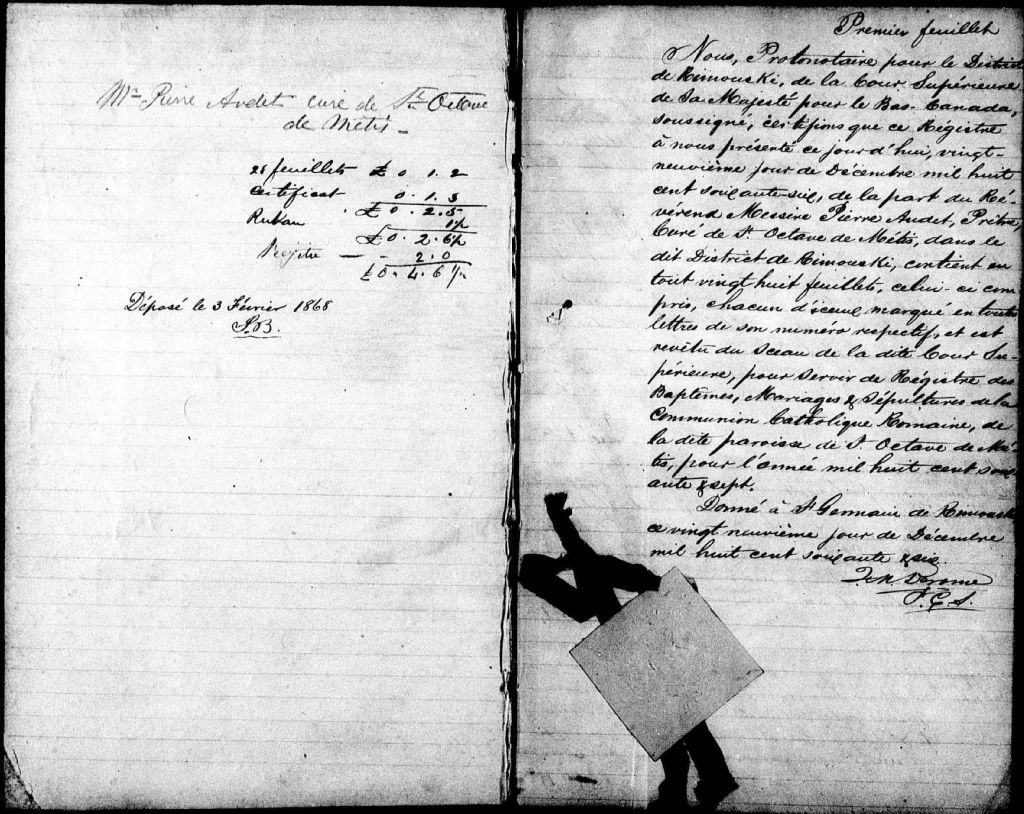 Mr. Pierre Audet curé de St. Octave
de Métis
28 feuillets £ 0. 1. 2
Certificat 0. 1. 3
£ 0. 2. 5
Ruban 1½
£ 0. 2. 6½
Régitre — 2. 0
£ 0. 4. 6½
Déposé le 3 Février 1868
Premier feuillet
Nous, Protonotaire pour le District
de Rimouski, de la Cour Supérieure
de Sa Majesté pour le Bas-Canada,
soussigné, certifions que ce Régistre
à nous présenté ce jour d'hui, vingt-
neuvième jour de Décembre mil huit
cent soixante-six, de la part du Ré-
vérend Messire Pierre Audet, Prêtre,
Curé de St. Octave de Métis, dans le
dit District de Rimouski, contient en
tout vingt huit feuillets, celui-ci com
pris, chacun d'iceux marqué en toutes
lettres de son numéro respectif, et est
revêtu du Sceau de la dite Cour Su-
périeure, pour servir de Régistre des
Baptêmes, Mariages & Sépultures de la
Communion Catholique Romaine, de
la dite paroisse de St. Octave de Mé-
tis, pour l'année mil huit cent soix
ante & sept.
Donné à St Germain de Rimouski
ce vingt neuvième jour de Décembre
mil huit cent soixante & six.
Derome
P. C. S.